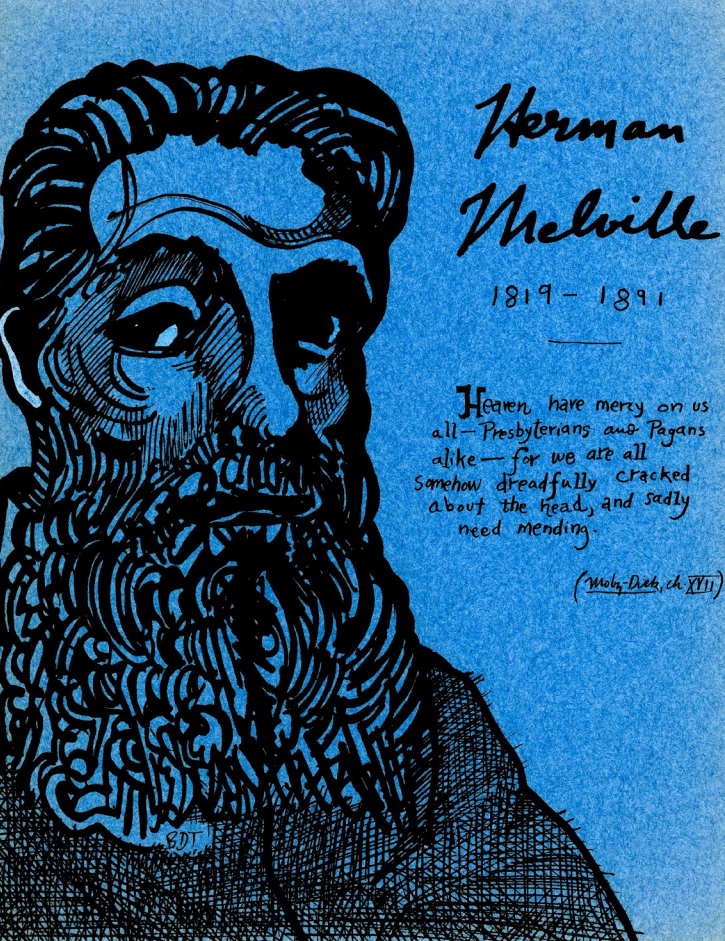 Herman
Melville
1819 - 1891
Heaven have mercy on us
all — Presbyterians and Pagans
alike — for we are all
somehow dreadfully cracked
about the head, and sadly
need mending.
(Moby-Dick, ch. XVII)
BDT